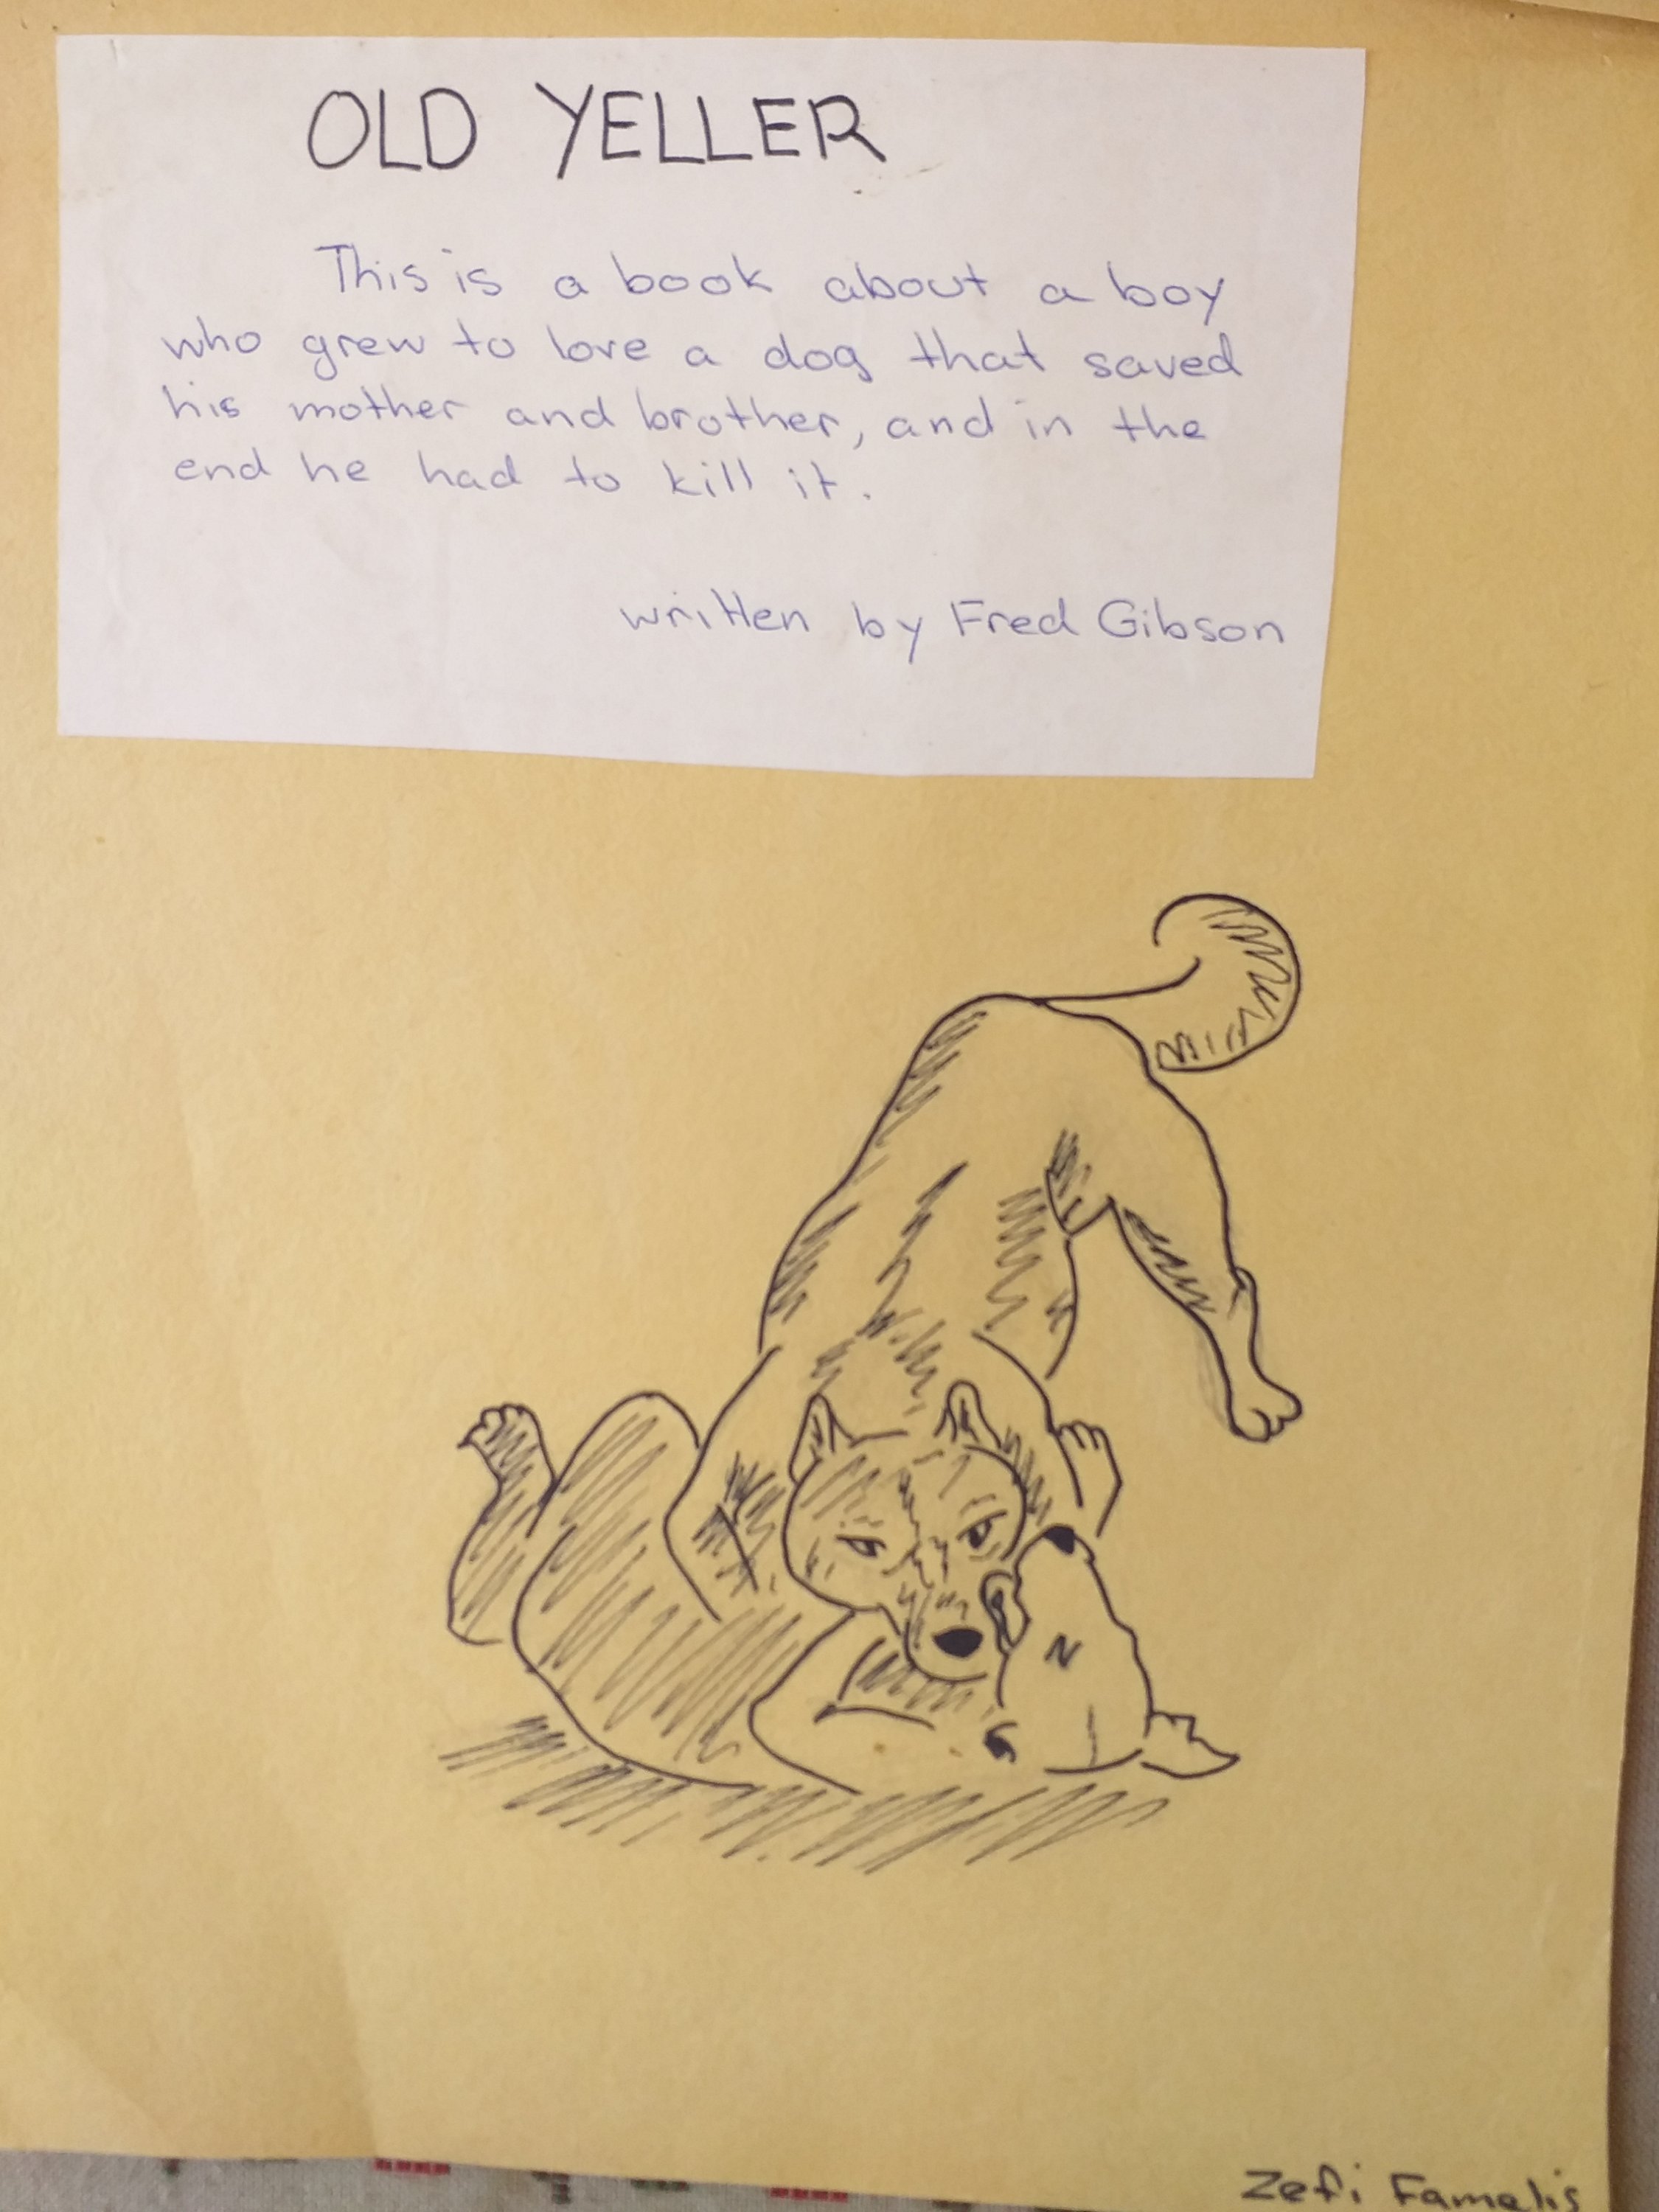 OLD YELLER
This is a book about a boy
who grew to love a dog that saved
his mother and brother, and in the
end he had to kill it.
written by Fred Gibson
Zefi Famelis